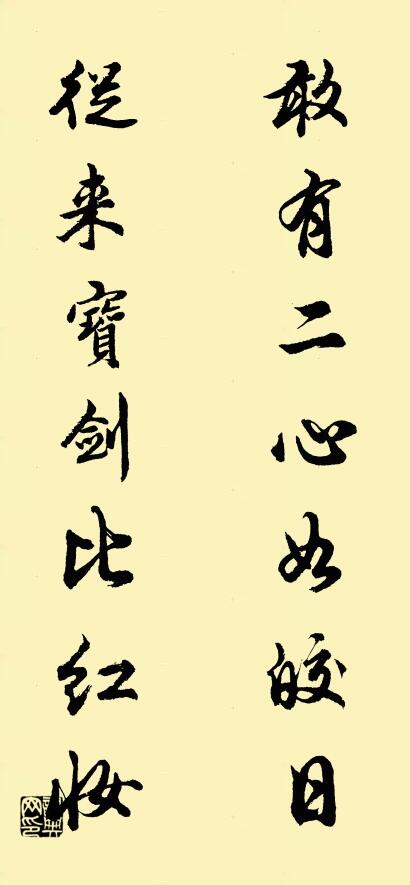 敢有二心如皎日
從来寶劍比红妝